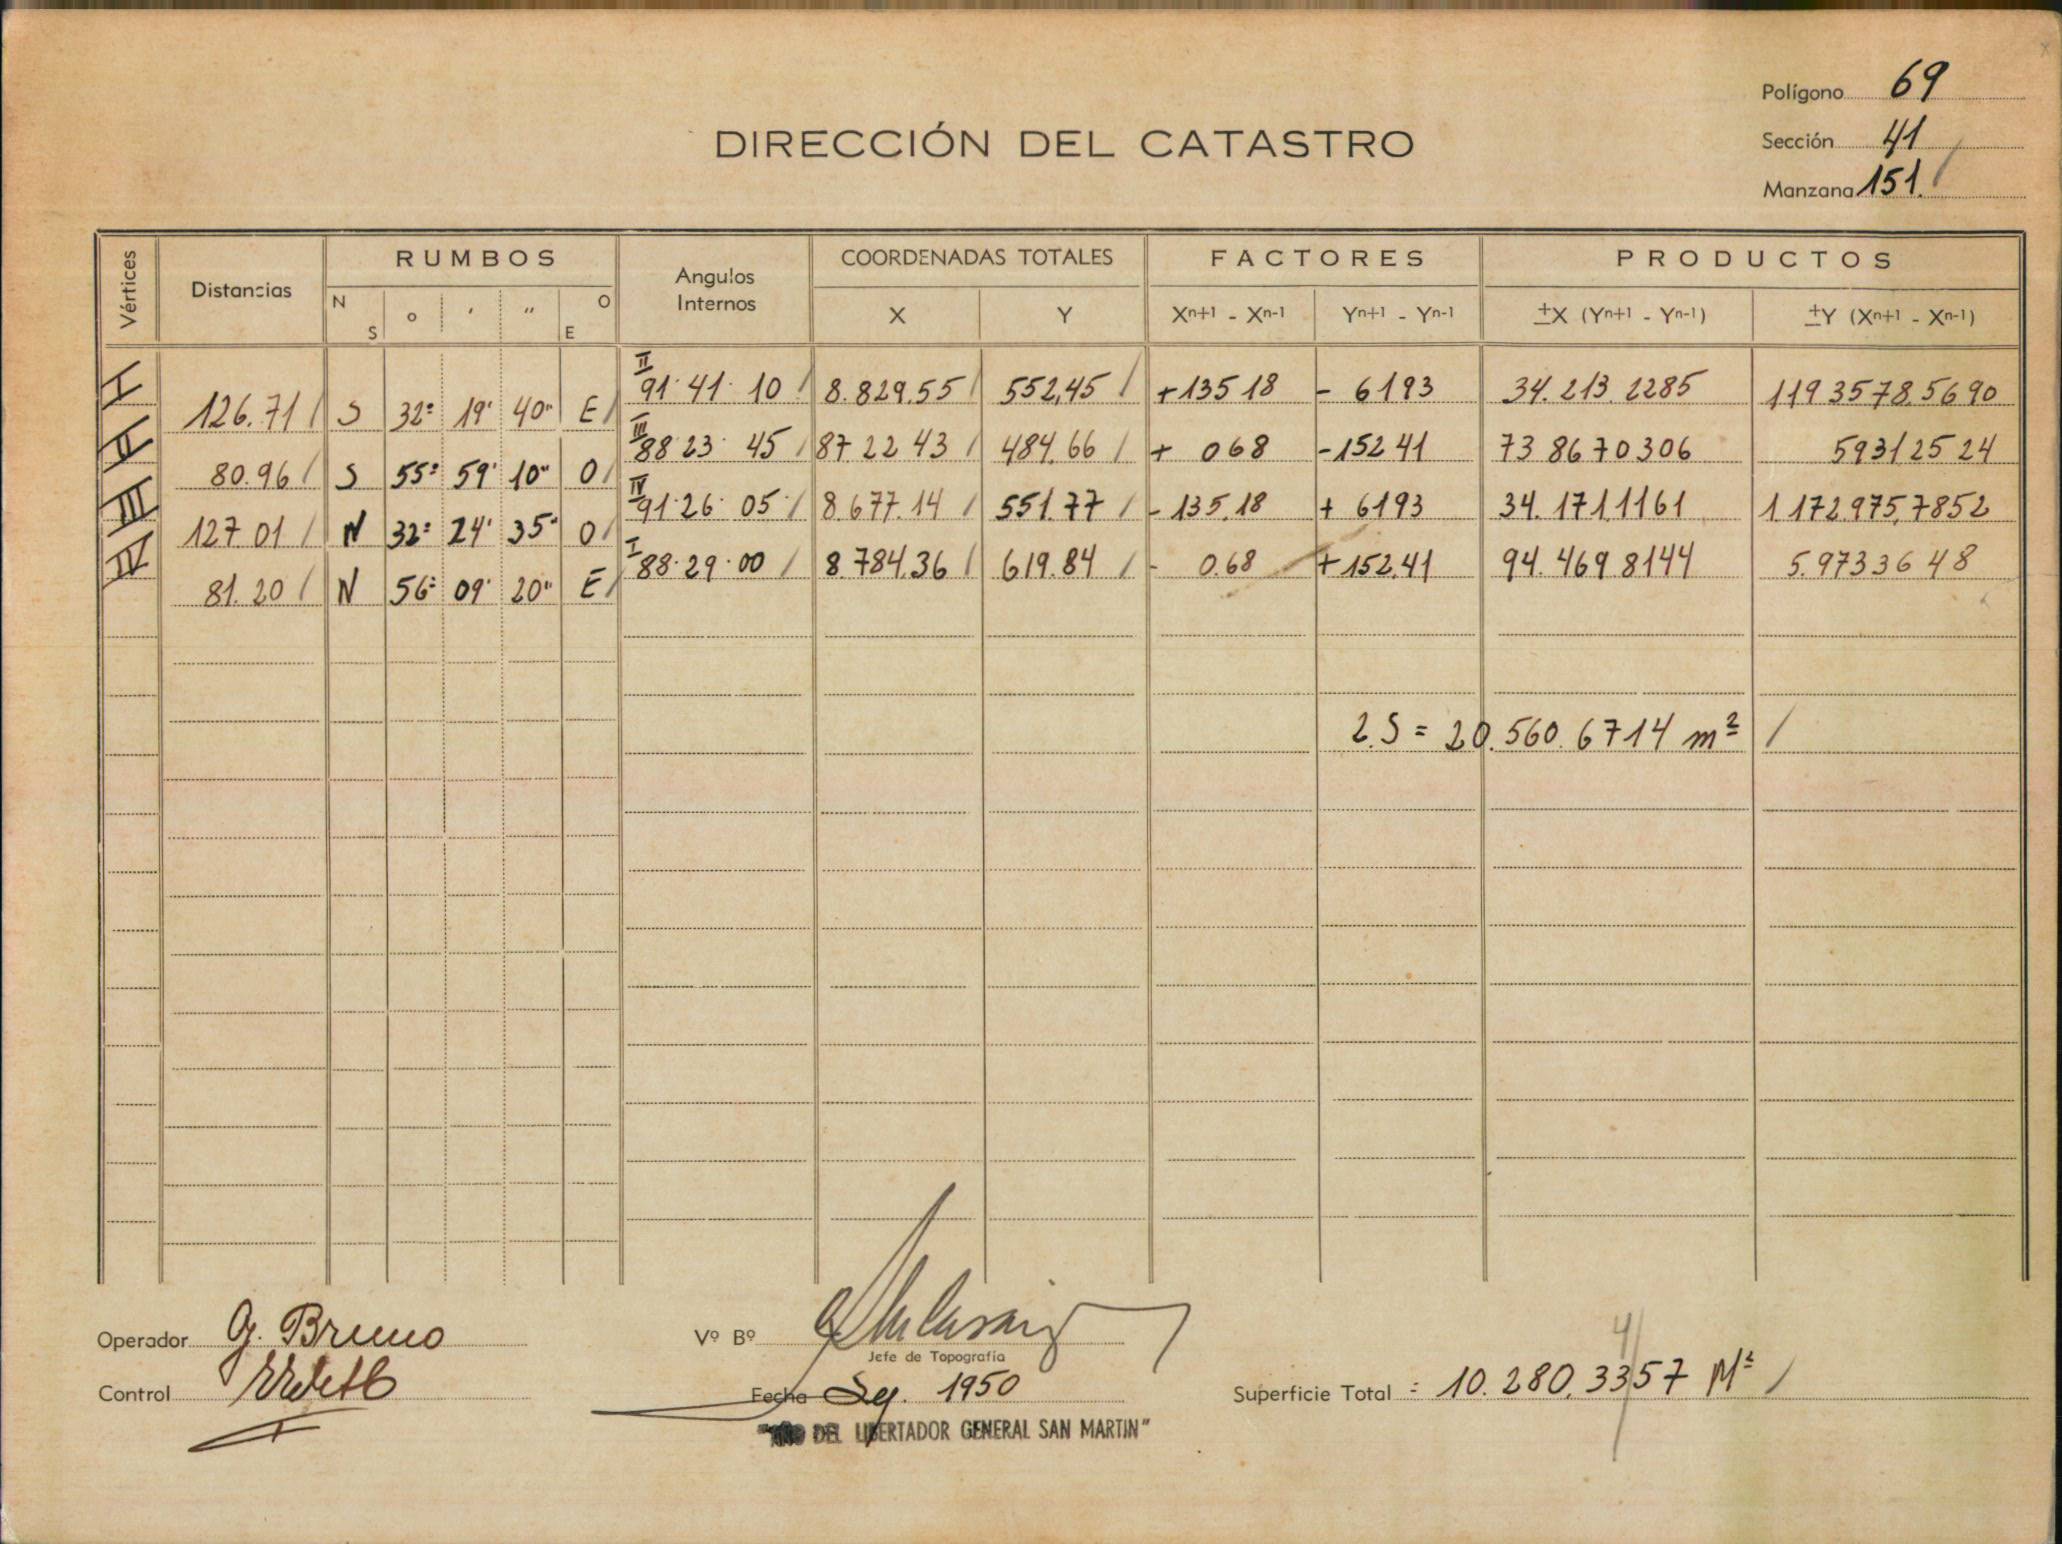 Polígono 69
DIRECCIÓN DEL CATASTRO
Sección 41
Manzana 151.
Vértices Distancias RUMBOS Angulos Internos COORDENADAS TOTALES FACTORES PRODUCTOS
N S o ' '' O E X Y Xn+1 - Xn-1 Yn+1 - Yn-1 ±X (Yn+1 - Yn-1) ±Y (Xn+1 - Xn-1)
I II 91· 41· 10 8.829.55 552,45 +135 18 - 6193 34.213.2285 1193578.5690
126.71 S 32º 19' 40" E
II III 88 23· 45 87 22 43 484.66 + 068 -152 41 73 8670306 59312524
80.96 S 55º 59' 10" O
III IV 91·26· 05 8.677.14 551.77 - 135.18 + 6193 34.171.1161 1.172.975,7852
127 01 N 32º 24' 35" O
IV I 88·29·00 8.784.36 619.84 - 0.68 +152.41 94.469 8144 5.9733648
81.20 N 56º 09' 20" E
2.S = 20.560.6714 m²
Operador G. Bruno
Vº Bº
Jefe de Topografía
Control
Fecha 1950
Superficie Total = 10.280.3357 M²
4
DEL LIBERTADOR GENERAL SAN MARTIN"